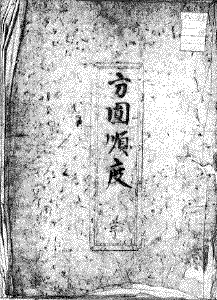 方圓順度